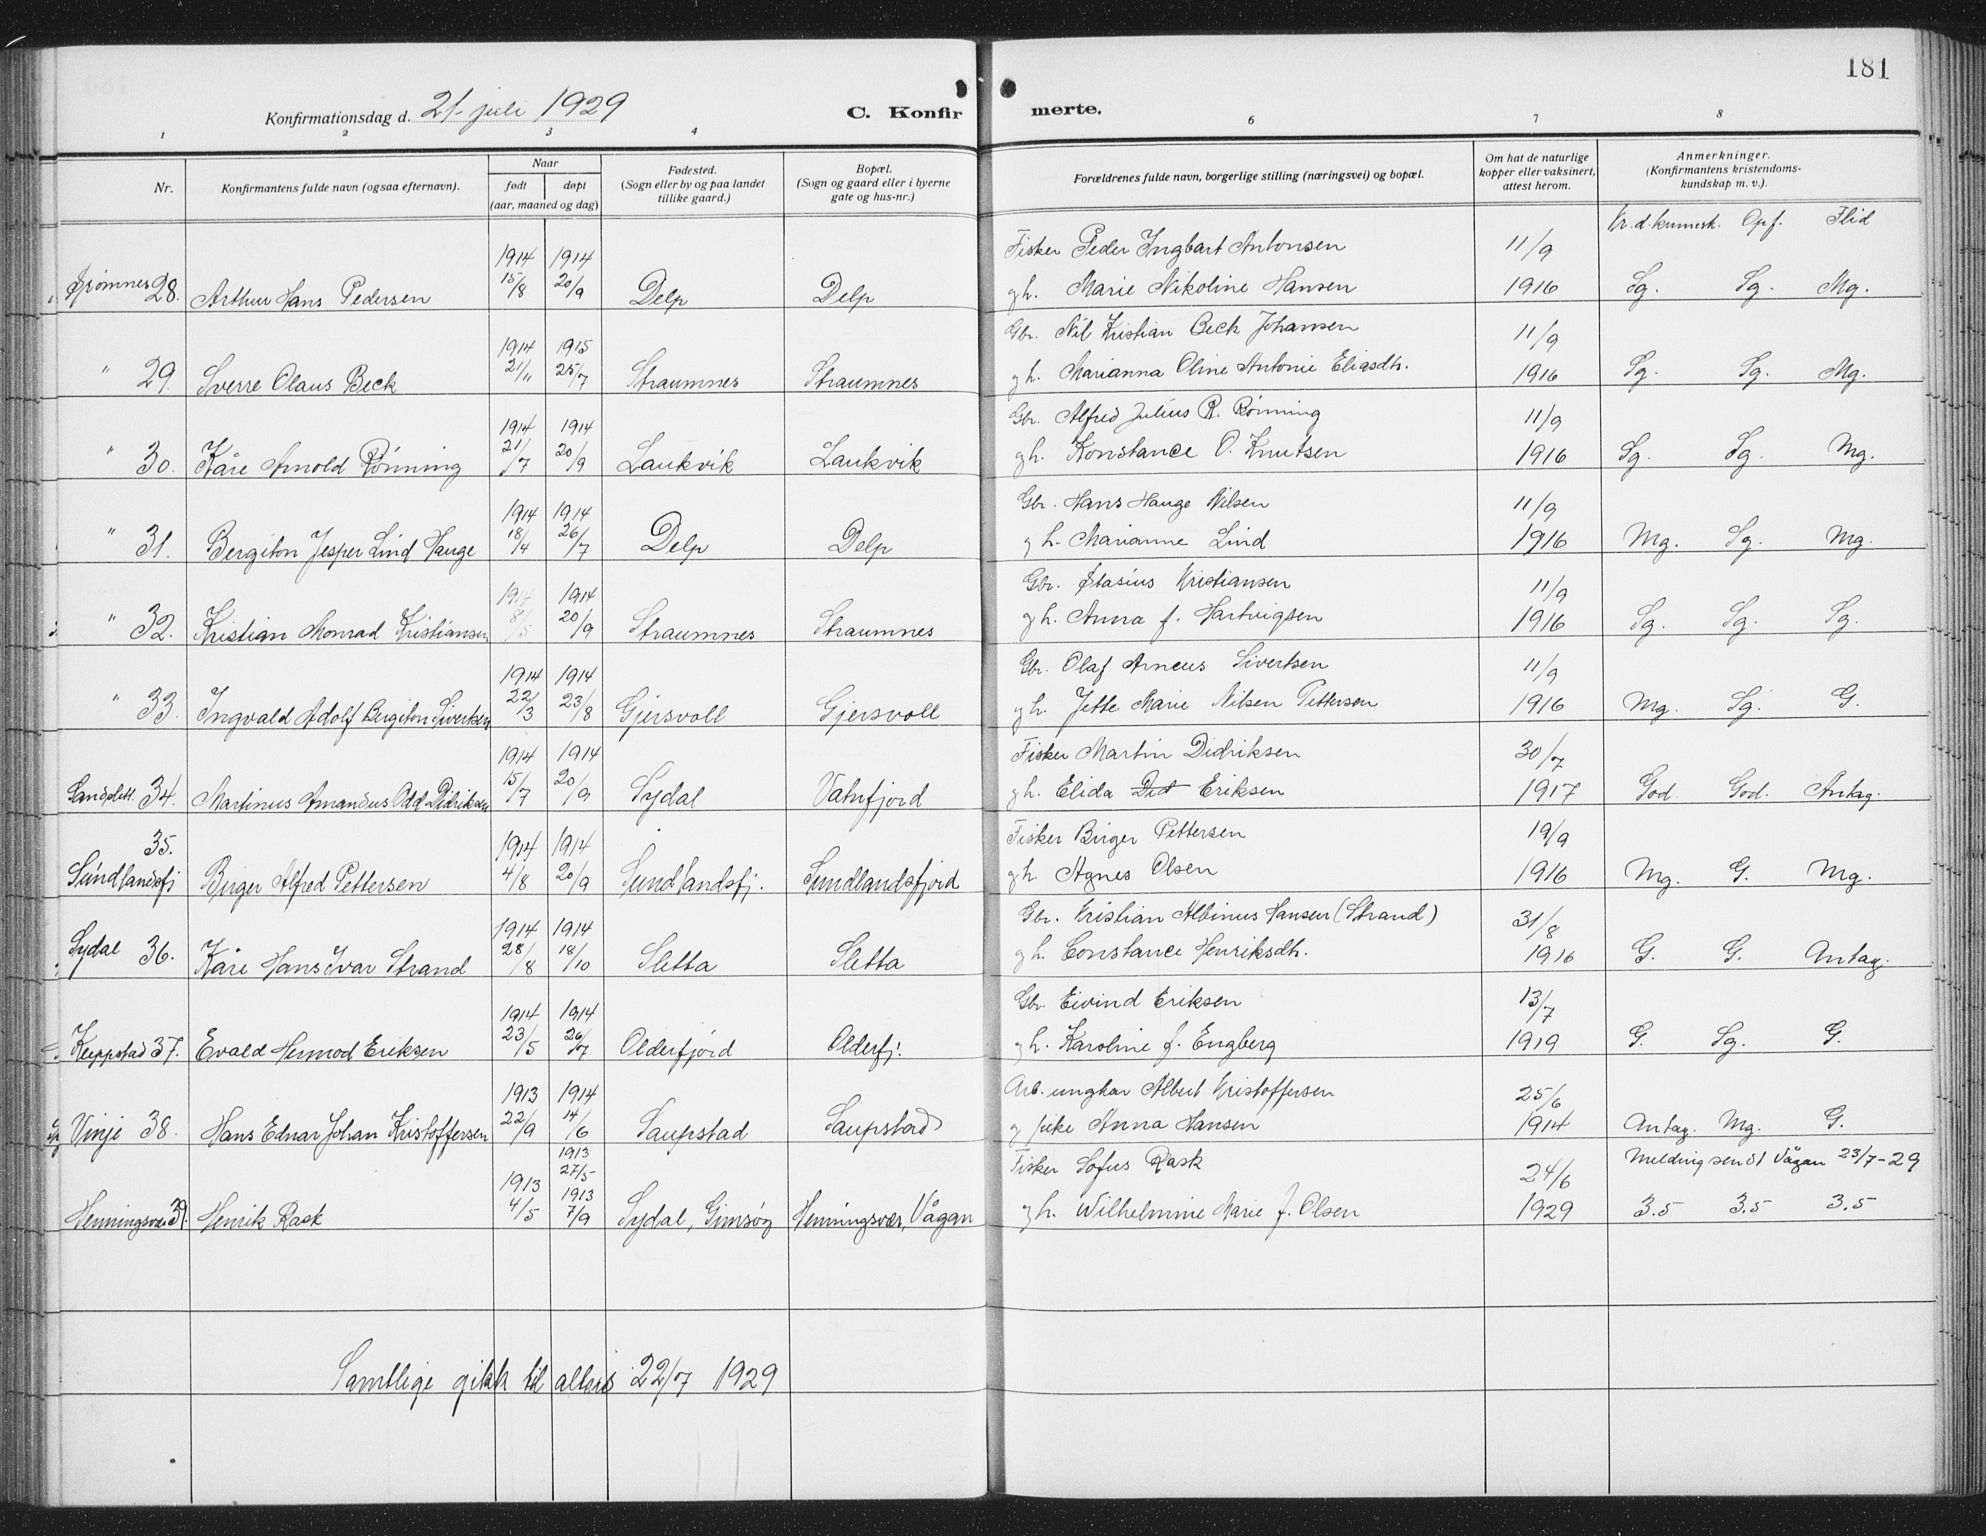 181
Konfirmationsdag d. 21. juli 1929 C. Konfirmerte.
1 2 3 4 6 7 8
Nr. Konfirmantens fulde navn (ogsaa efternavn). Naar født døpt (aar, maaned og dag) Fødested. (Sogn eller by og paa landet tillike gaard.) Bopæl. (Sogn og gaard eller i byerne gate og hus-nr.) Forældrenes fulde navn, borgerlige stilling (næringsvei) og bopæl. Om hat de naturlige kopper eller vaksinert, attest herom. Anmerkninger. (Konfirmantens kristendomskundskap m. v.).
Kr.d.kunnsk. Opf. Flid
1914 1914 Fisker Peder Ingbart Antonsen 11/9
28. Arthur Hans Pedersen 15/8 20/9 Delp Delp g h. Marie Nikoline Hansen 1916 Sg. Sg. Mg.
1914 1915 Gbr. Nil Kristian Beck Johansen 11/9
" 29. Sverre Olaus Beck 21/11 25/7 Straumnes Straumnes g h. Marianna Oline Antonie Eliasdtr. 1916 Sg. Sg. Mg.
1914 1914 Gbr. Alfred Julius R. Rønning 11/9
" 30. Kåre Arnold Rønning 21/7 20/9 Laukvik Laukvik g h. Konstance O. Knutsen 1916 Sg. Sg. Mg.
1914 1914 Gbr. Hans Hauge Nilsen 11/9
" 31. Bergiton Jesper Lind Hauge 18/4 26/7 Delp Delp g h. Marianne Lind 1916 Mg. Sg. Mg.
1914 1914 Gbr. Kristiansen 11/9
" 32. Kristian Monrad Kristiansen 8/5 20/9 Straumnes Straumnes g h. Anna f. Hartvigsen 1916 Sg. Sg. Sg.
1914 1914 Gbr. Olaf Arneus Sivertsen 11/9
" 33. Ingvald Adolf Bergiton Sivertsen 22/3 23/8 Gjersvoll Gjersvoll g h. Jette Marie Nilsen Pettersen 1916 Mg. Sg. G.
1914 1914 Fisker Martin Didriksen 30/7
Sandslett. 34. Martinus Amandus Odd Didriksen 15/7 20/9 Sydal Vatnfjord g h. Elida Did Eriksen 1917 God. God. Antag.
35. 1914 1914 Fisker Birger Pettersen 19/9
Sundlandsfj Birger Alfred Pettersen 4/8 20/9 Sundlandsfj. Sundlandsfjord g h. Agnes Olsen 1916 Mg. G. Mg.
1914 1914 Gbr. Kristian Albinus Hansen (Strand) 31/8
Sydal 36. Kåre Hans Ivar Strand 28/8 18/10 Sletta Sletta g h. Constance Henriksdtr. 1916 G. G. Antag.
1914 1914 Gbr. Eivind Eriksen 13/7
Keppstad 37. Evald Hermod Eriksen 23/5 26/7 Olderfjord Olderfj. g h. Karoline f. Engberg 1919 G. Sg. G.
1913 1914 Arb. ungkar Albert Kristoffersen 25/6
Vinje 38. Hans Ednar Johan Kristoffersen 22/9 14/6 Saupstad Saupstad g pike Anna Hansen 1914 Antag. Mg. G.
1913 27/5 Fisker Sofus Rask 24/6 Melding sendt Vågan 23/7-29
Henningsvær 39. Henrik Rask 1913 4/5 1913 7/9 Sydal, Gimsøy Henningsvær, Vågan g h. Wilhelmine Marie f. Olsen 1929 3.5 3.5 3.5
Samtlige gikk til alters 22/7 1929